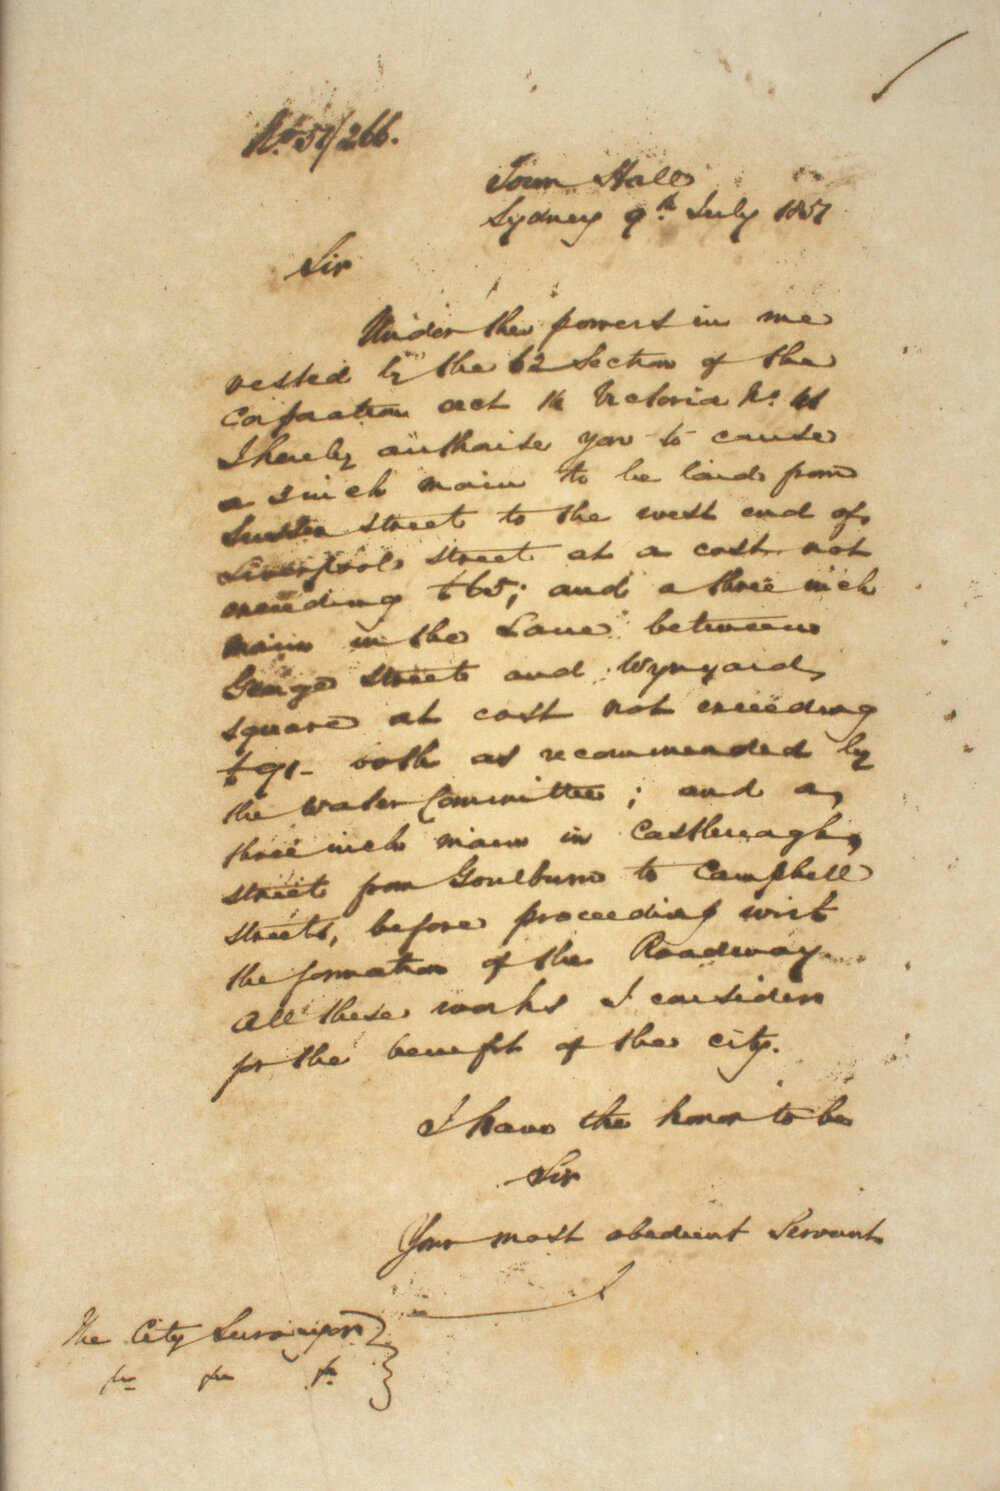 No. 57/266.
Town Hall
Sydney 9th July 1857
Sir
Under the powers in me
vested by the 62 Section of the
Corporation act Victoria No. 41
I hereby authorise you to cause
a inch main to be laid from
Sussex Street to the west end of
Liverpool Street at a cost not
exceeding £65; and a three inch
main in the Lane between
George Street and Wynyard
square at cost not exceeding
£91- both as recommended by
the Water Committee; and a
three inch main in Castlereagh
street from Goulburn to Campbell
streets, before proceeding with
the formation of the Roadway
All these works I consider
for the benefit of the city.
I have the honor to be
Sir
Your most obedient Servant
The City Surveyor